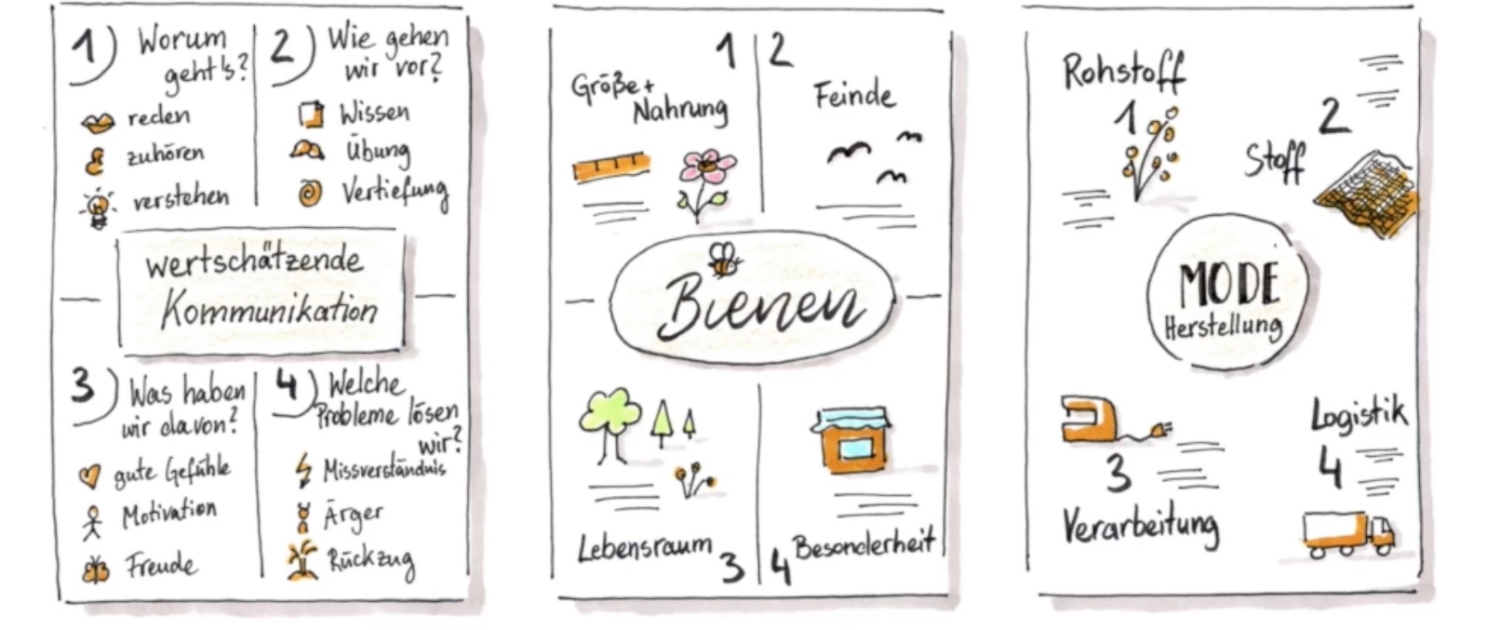 1) Worum
geht's?
reden
zuhören
verstehen
2) Wie gehen
wir vor?
Wissen
Übung
Vertiefung
wertschätzende
Kommunikation
3) Was haben
wir davon?
gute Gefühle
Motivation
Freude
4) Welche
Probleme lösen
wir?
Missverständnis
Ärger
Rückzug
1
Größe+
Nahrung
2
Feinde
Bienen
Lebensraum
3
4
Besonderheit
Rohstoff
1
2
Stoff
MODE
Herstellung
3
Verarbeitung
Logistik
4